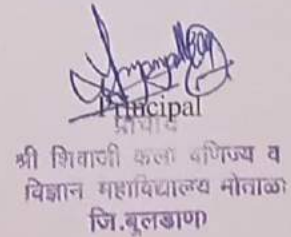 Principal
प्राचार्य
श्री शिवाजी कला वणिज्य व
विज्ञान महाविद्यालय मोताळा
जि.बुलडाणा